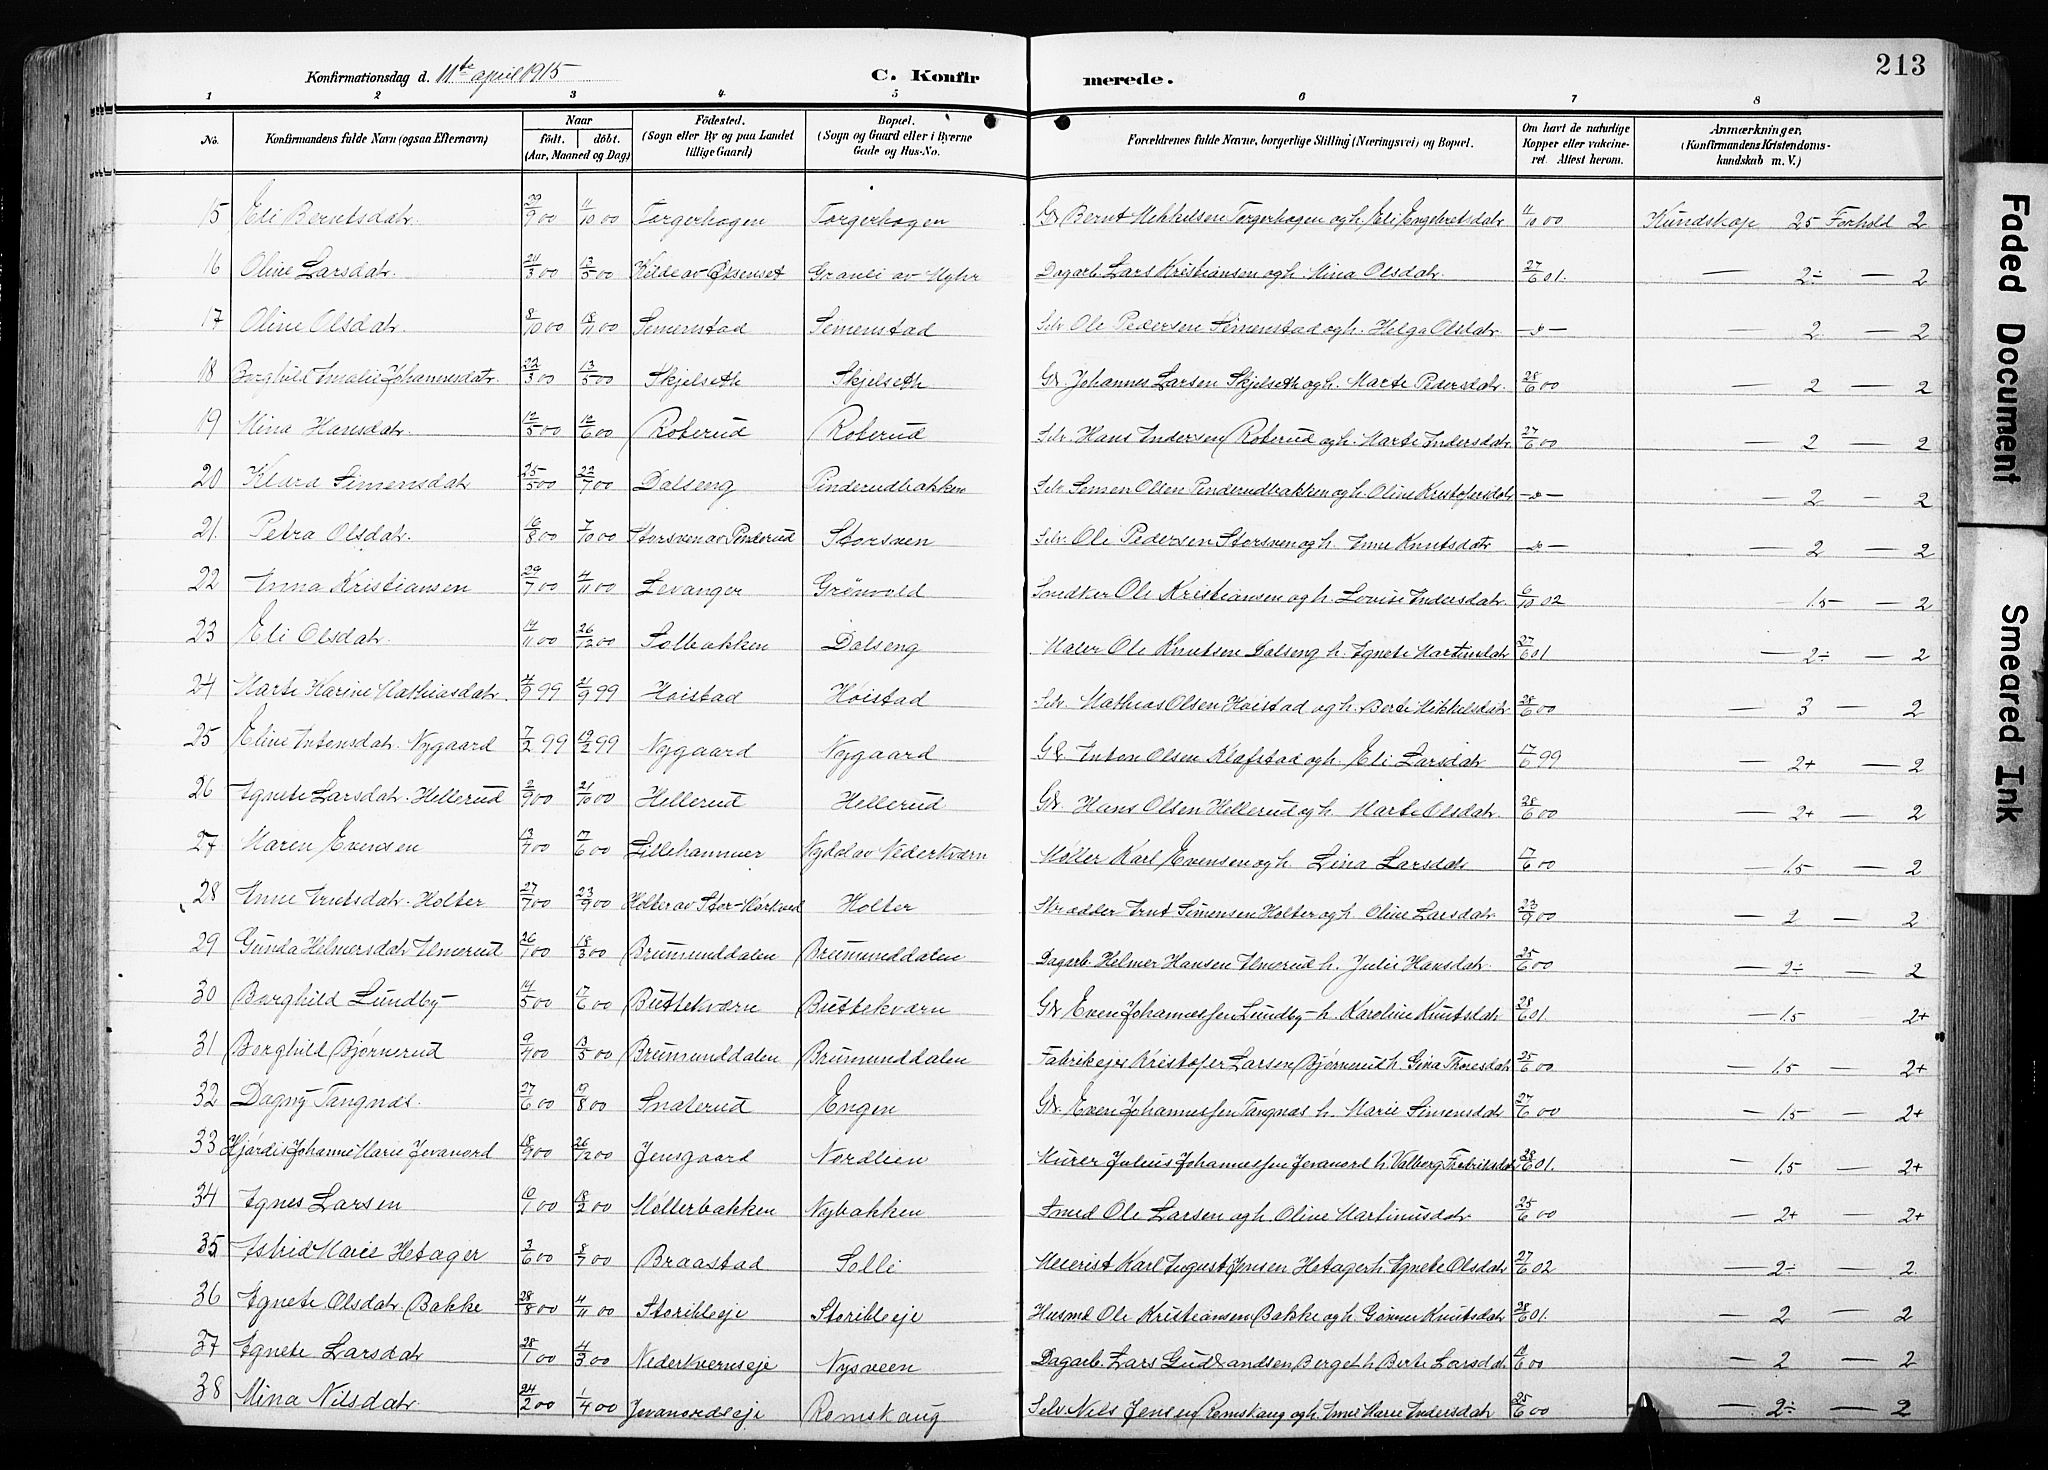 Konfirmationsdag d. 11te april 1915
C. Konfirmerede.
213
1 2 3 4 5 6 7 8
No. Konfirmandens fulde Navn (ogsaa Efternavn) Naar født. døbt. (Aar, Maaned og Dag) Fødested. (Sogn eller By og paa Landet tillige Gaard) Bopæl. (Sogn og Gaard eller i Byerne Gade og Hus-No. Forældrenes fulde Navne, borgerlige Stilling (Næringsvei) og Bopæl. Om havt de naturlige Kopper eller vakcineret. Attest herom. Anmærkninger, (Konfirmandens Kristendomskundskab m. V.)
15 Eli Berntsdatr. 29/9 00 11/10 00 Torgerhagen Torgerhagen G Bernt Mikkelsen Torgerhagen og h. Eli Engebretsdatr 11/10 00 Kundskap 2.5 Forhold 2
16 Oline Larsdatr. 24/3 00 13/5 00 Kilde av Øksenset Granli av Myhr Dagarb. Lars Kristiansen og h. Mina Olsdatr. 27/6 01. — 2÷ — 2
17 Oline Olsdatr. 8/10 00 18/11 00 Simenstad Simenstad Selv. Ole Pedersen Simenstad og h. Helga Olsdatr. —"— — 2 — 2
18 Borghild Amalie Johannesdatr. 22/3 00 13/5 00 Skjelseth Skjelseth G. Johannes Larsen Skjelseth og h. Marte Pedersdatr. 28/6 00 — 2 — 2
19 Mina Hansdatr. 12/5 00 10/6 00 Roterud Roterud Selv. Hans Andersen Roterud og h. Marte Andersdatr. 27/6 00 — 2 — 2
20 Klara Simensdatr 25/5 00 22/7 00 Dalseng Pinderudbakken Selv. Simen Olsen Pinderudbakken og h. Oline Kristofersdatr —"— — 2 — 2
21. Petra Olsdatr. 16/8 00 7/10 00 Storsven av Pinderud Storsven Selv. Ole Pedersen Storsven og h. Anne Knutsdatr —"— — 2 — 2
22 Anna Kristiansen 29/7 00 4/11 00 Levanger Grönvold Snedker Ole Kristiansen og h. Lovise Andersdatr. 6/10 02 1.5 — 2
23 Eli Olsdatr. 14/11 00 26/12 00 Solbakken Dalseng Maler Ole Knutsen Dalseng h. Agnete Martinsdatr 27/6 01 — 2÷ — 2
24 Marte Karine Mathiasdatr. 4/9 99 Høistad Høistad Selv. Mathias Olsen Høistad og h. Berte Mikkelsdatr. 28/6 00 — 3 — 2
25 Eline Antonsdatr. Nygaard 7/2 99 19/2 99 Nygaard Nygaard G Anton Olsen Klafstad og h. Eli Larsdatr 17/6 99 — 2+ — 2
26 Agnete Larsdatr. Hellerud 2/9 00 21/10 00 Hellerud Hellerud G. Hans Olsen Hellerud og h. Marte Olsdatr. 28/6 00 — 2+ — 2
27 Maren Evensen 13/4 00 17/6 00 Lillehammer Nydal av Nederkværn Møller Karl Evensen og h. Lina Larsdatr 17/6 00 — 1.5 — 2
28 Anne Arntsdatr. Holter 27/7 00 23/9 00 Holter av Stor-Hørkved Holter Arnt Simensen Holter og h. Oline Larsdatr. 23/9 00 — 2 — 2
29 Gunda Helmersdatr. Almerud 26/1 00 18/3 00 Brumunddalen Brumunddalen. Dagarb. Helmer Hansen Almerud h. Julie Hansdatr. 25/6 00 — 2÷ — 2
30 Borghild Lundby— 14/5 00 17/6 00 Buttekværn Buttekværn G. Even Johannessen Lundby— h. Karoline Knutsdatr 28/6 01. — 1.5 — 2+
31 Borghild Bjørnerud 9/4 00 13/5 00 Brumunddalen Brumunddalen Fabrikejer Kristofer Larsen Bjørnerud h. Gina Thoresdatr 25/6 00 — 1.5 — 2+
32 Dagny Tangnæs. 27/6 00 19/8 00 Snaterud Engen G. Even Johannessen Tangnæs h. Marie Simensdatr 27/6 00 — 1.5 — 2+
33 Hjørdis Johanne Marie Jevanord 18/9 00 26/12 00 Jensgaard Nordlien Murer Julius Johannessen Jevanord h. Valborg Fredriksdatr 28/6 01. — 1.5 — 2+
34 Agnes Larsen 10/1 00 18/2 00 Møllerbakken Nybakken Smed Ole Larsen og h. Oline Martinusdatr 25/6 00 — 2+ — 2+
35 Astrid Marie Hetager 3/6 00 8/7 00 Braastad Solli Meierist Karl August Jensen Hetager h. Agnete Olsdatr 27/6 02 — 2÷ — 2.
36 Agnete Olsdatr. Bakke 28/8 00 4/11 00 Storihleje Storihleje Husmd Ole Kristiansen Bakke og h. Gunner Knutsdatr 28/6 01. — 2 — 2
37 Agnete Larsdatr 28/1 00 4/3 00 Nederkverneje Nysveen Dagarb. Lars Gudbrandsen Berget h. Berte Larsdatr 6 00 — 2 — 2
38 Mina Nilsdatr. 24/2 00 1/4 00 Jevanordseje Romskaug Selv. Nils Jensen Romskaug og h. Anne Marie Andersdatr 25/6 00 — 2÷ — 2
Faded Document
Smeared Ink